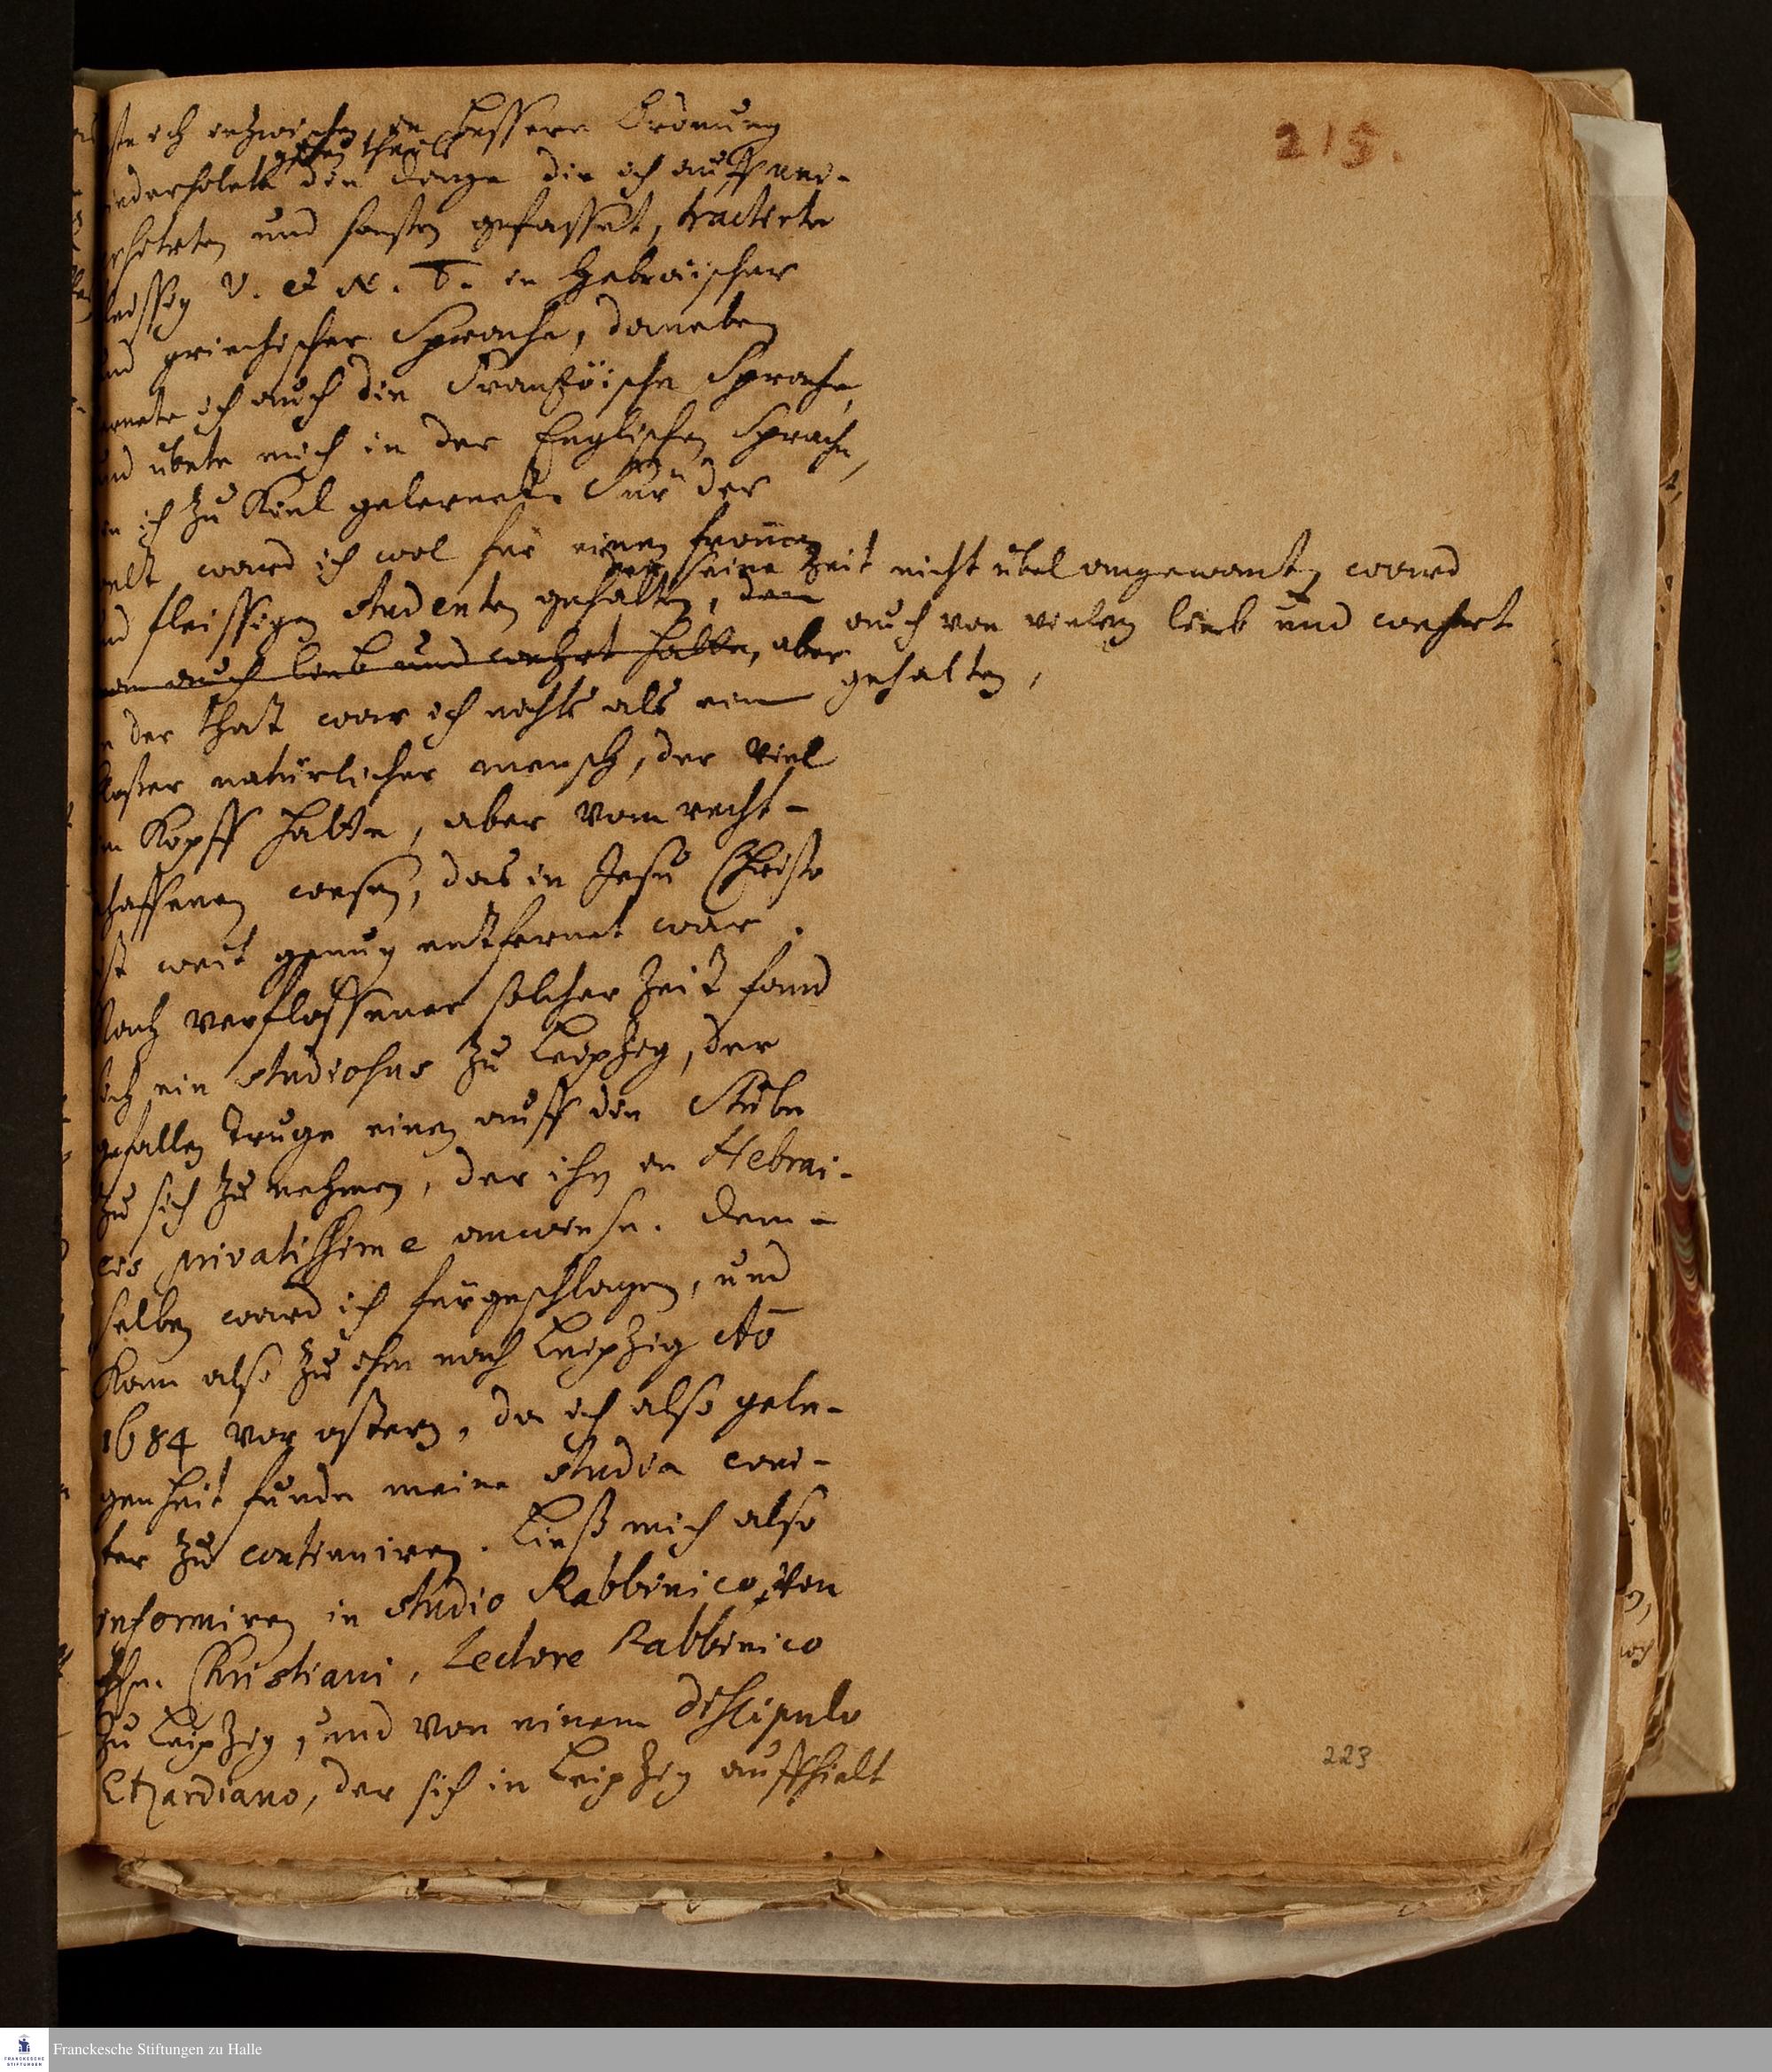 215.
ste ich inzwischen, in bessere Ordnung
iederholete grösten theils die dinge die ich auff uni-
ersiteten und sonsten gefasset, tractirte
leissig V. et N. T. in Hebräischer
nd griechischer Sprache, daneben
ernete ich auch die Französische Sprache,
nd übete mich in der Englischen Sprache,
ie ich zu Kiel gelernet. Für der
elt ward ich wol für einen frommen
nd fleissigen Studenten gehalten, der seine Zeit nicht übel angewant, ward
auch von vielen lieb und wehrt
gehalten,
man auch lieb und wehrt hatte, aber
n der that war ich nichts als ein
loßer natürlicher mensch, der viel
im Kopff hatte, aber vom recht-
chaffenen wesen, das in Jesu Christo
ist weit genug entfernet war.
Nach verflossener solcher Zeit fand
sich ein Studiosus zu Leipzig, der
gefallen truge einen auff die Stube
zu sich zu nehmen, der ihn in Hebrai-
cis privatissime anwiese. Dem-
selben ward ich fürgeschlagen, und
kam also zu ihm nach Leipzig Ao
1684 vor ostern, da ich also gele-
genheit funde meine Studia wei-
ter zu continuiren. Ließ mich also
informiren in Studio Rabbinico, von
Hn. Christiani, Lectore Rabbinico
zu Leipzig, und von einem discipulo
Etzardiano, der sich in Leipzig auffhielt
223
Franckesche Stiftungen zu Halle